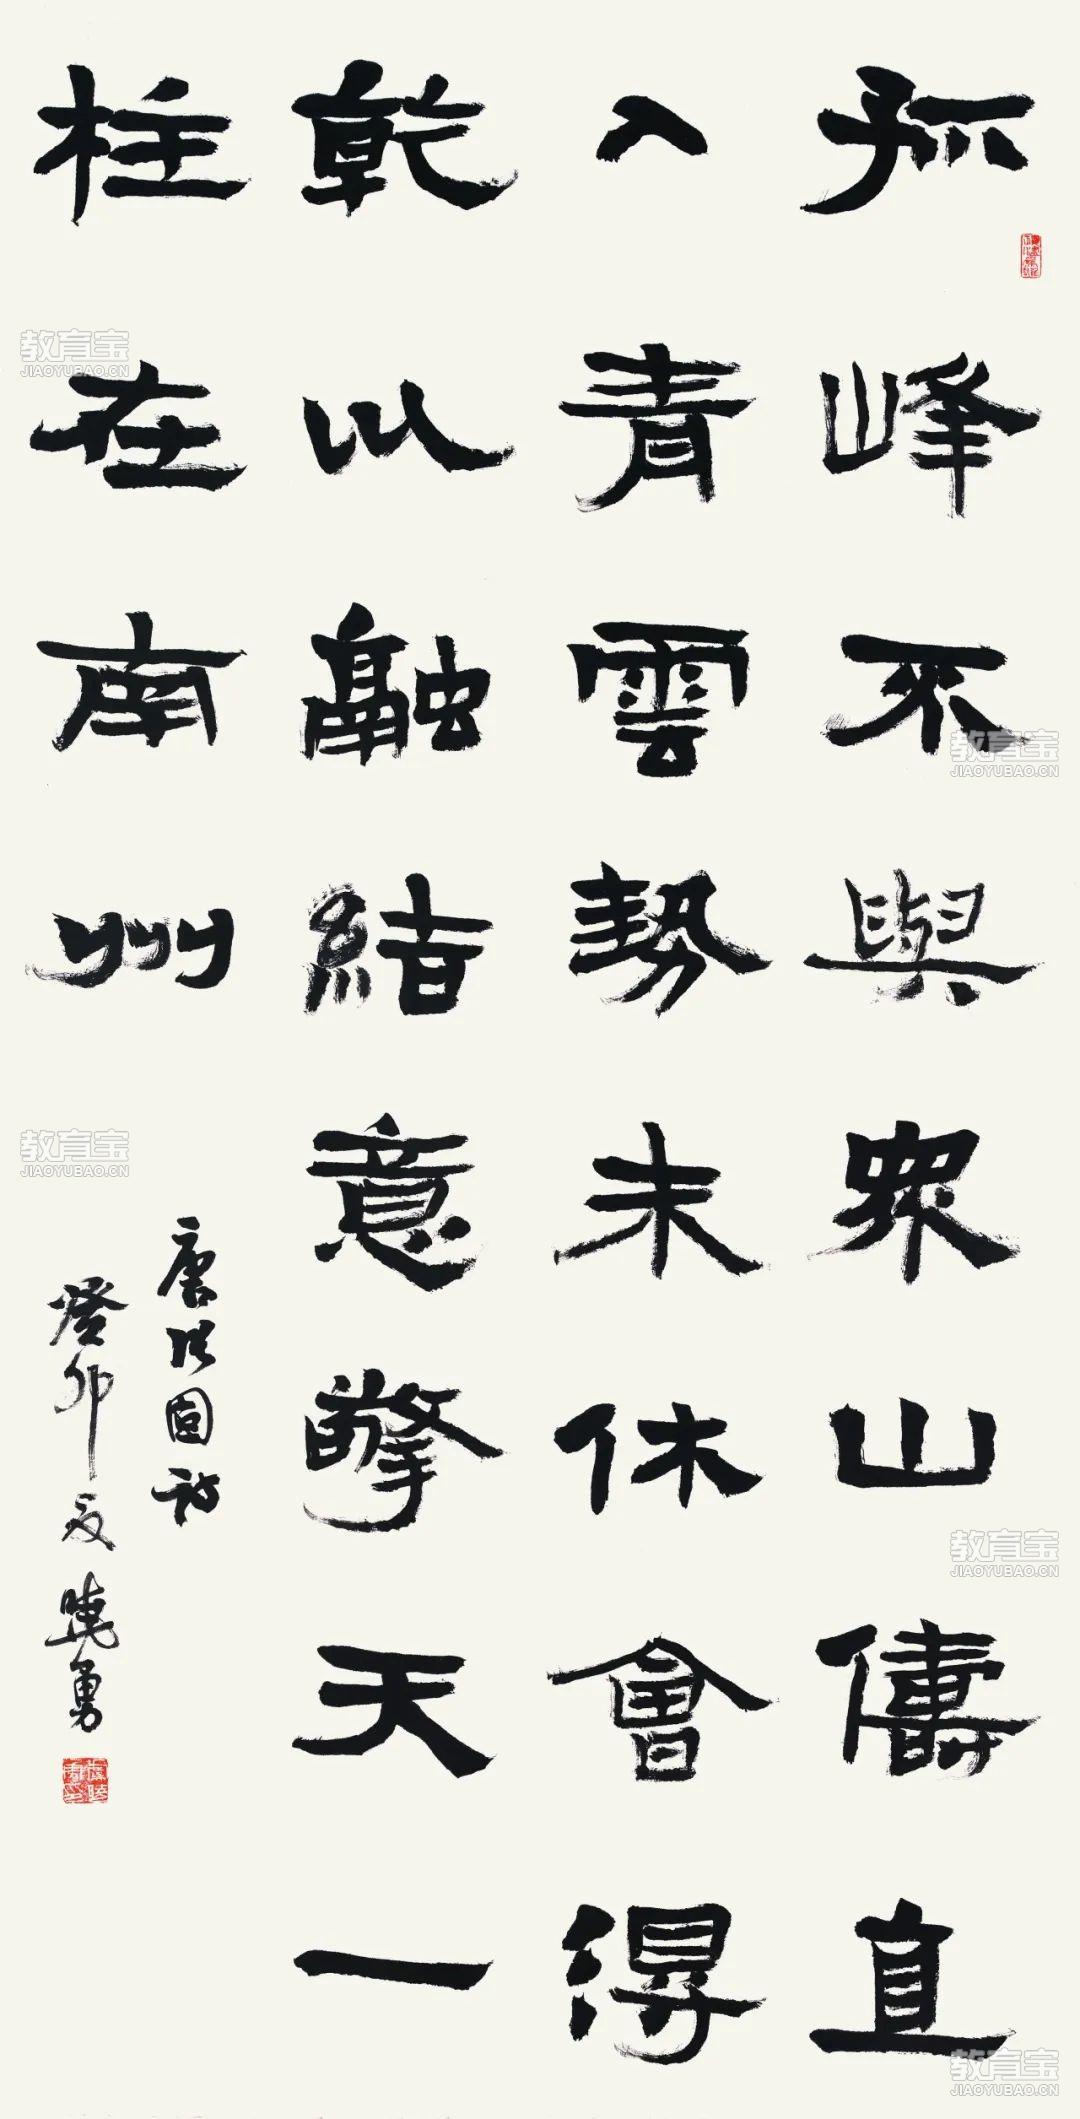 孤峰不與衆山儔直
入青雲勢未休會得
乾以融結意擎天一
柱在南州
唐張固詩
癸卯夏曉勇
教育宝
JIAOYUBAO.CN
教育宝
JIAOYUBAO.CN
教育宝
JIAOYUBAO.CN
教育宝
JIAOYUBAO.CN
教育宝
JIAOYUBAO.CN